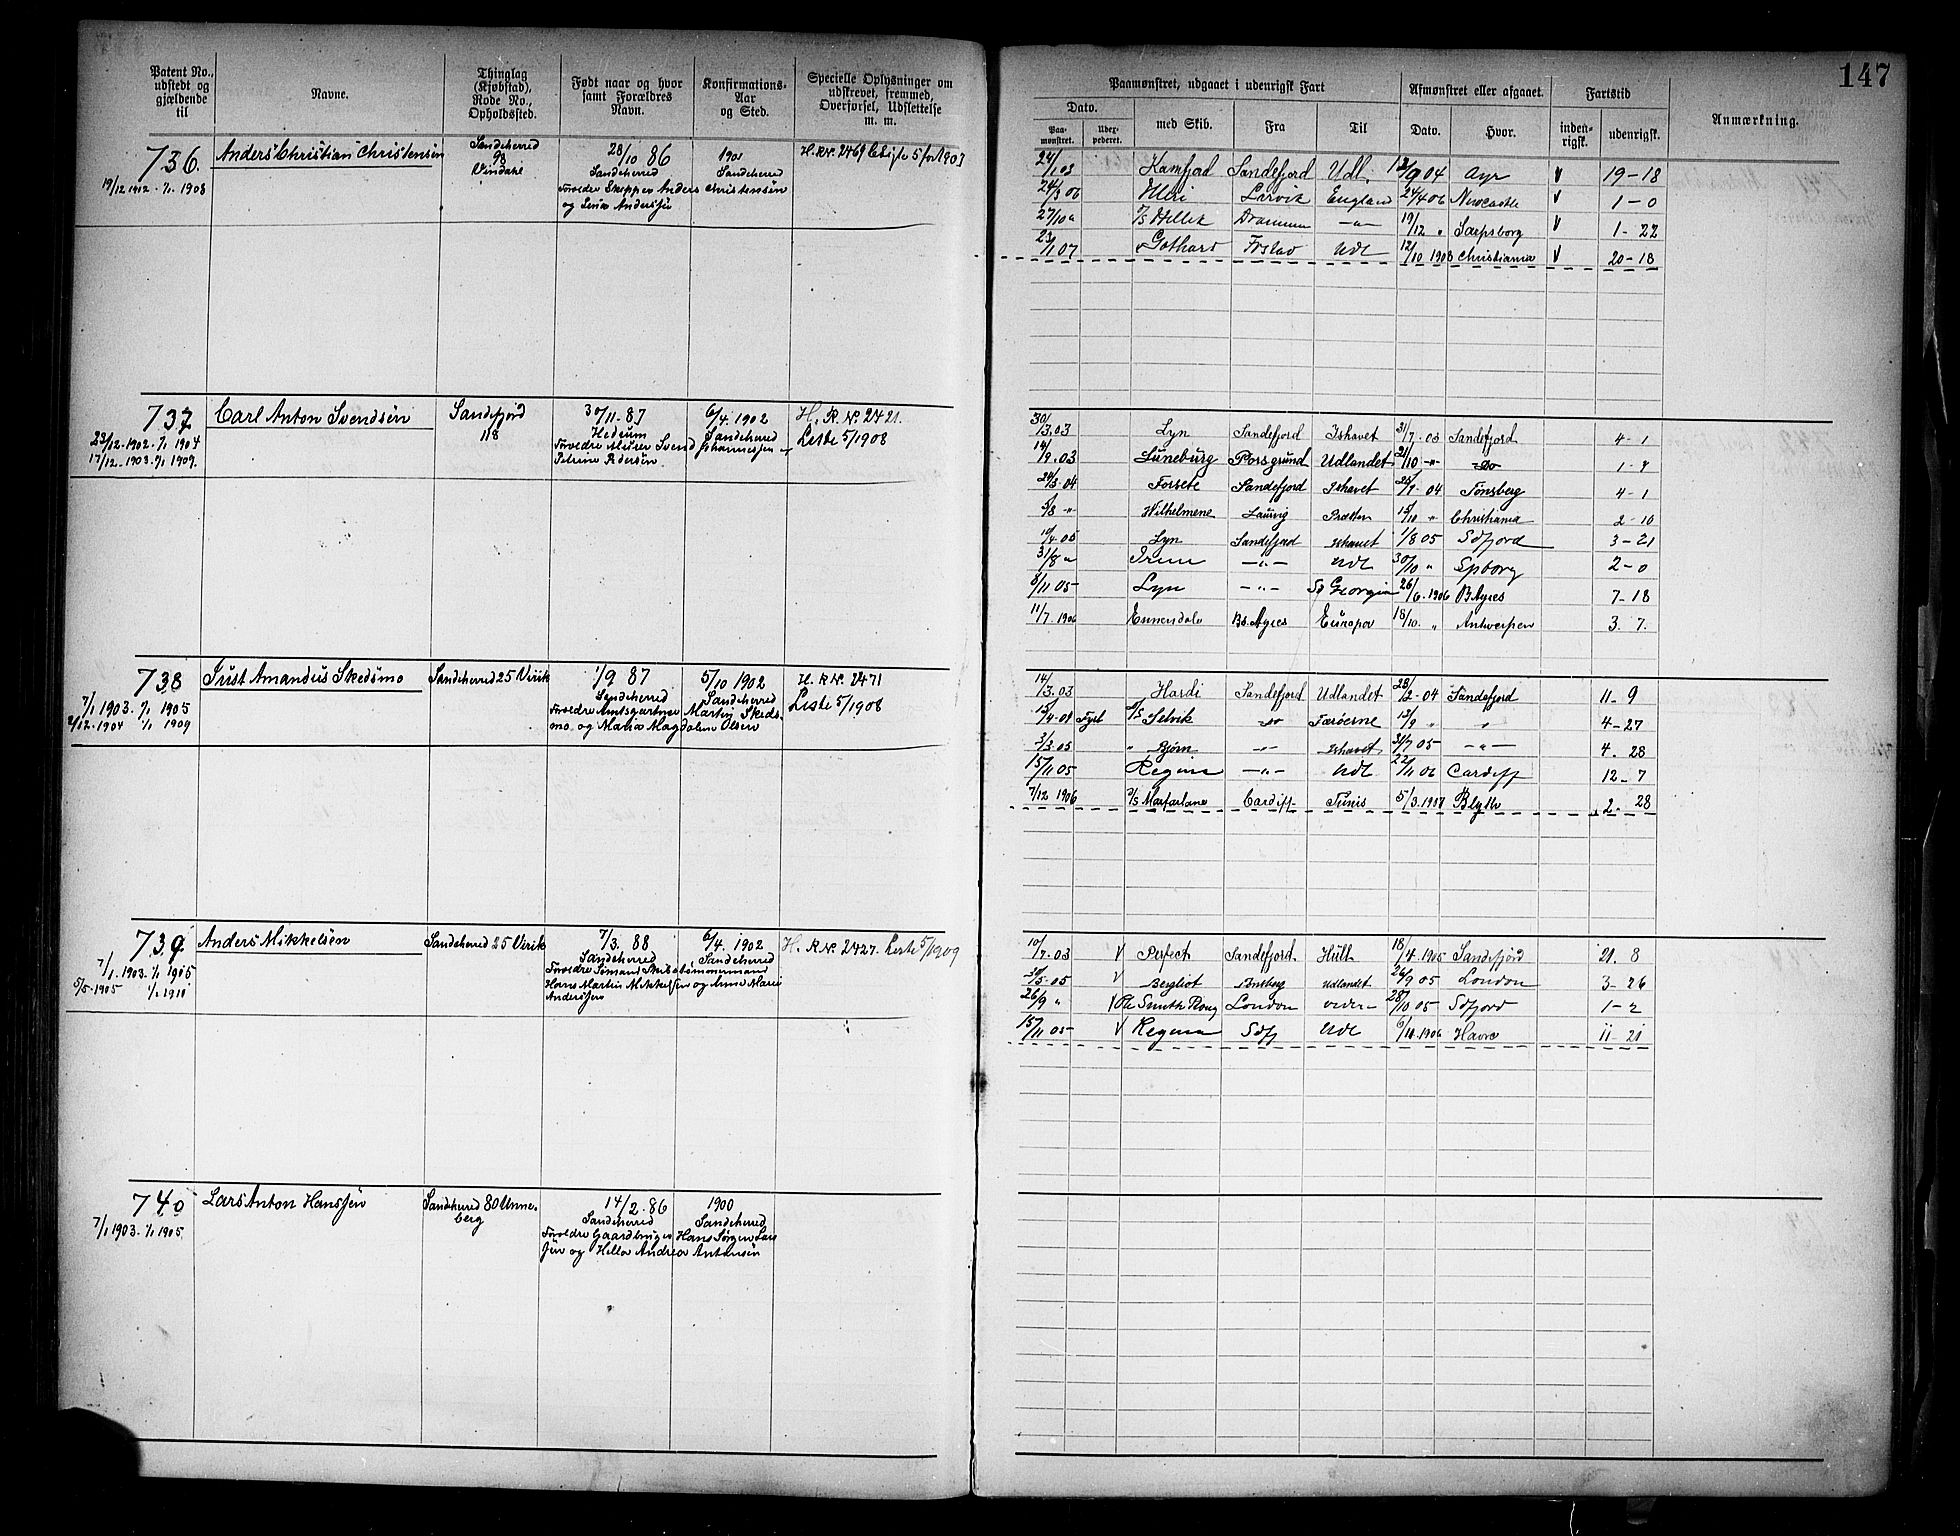 147
Patent No., udstedt og gjældende til
Navne.
Thinglag (Kjøbstad), Rode No., Opholdssted.
Født naar og hvor samt Forældres Navn.
Konfirmations-Aar og Sted.
Specielle Oplysninger om udskrevet, fremmed, Overførsel, Udslettelse m. m.
Paamønstret, udgaaet i udenrigsk Fart
Afmønstret eller afgaaet.
Fartstid
Anmærkning.
Dato.
Paa-mønstret.
Uderpederet.
med Skib.
Fra
Til
Dato.
Hvor.
inden-rigsk.
udenrigsk.
736.
Anders Christian Christensen
Sandeherred 98
28/10 86
Sandeherred
1901
Sandeherred
Forældre Skipper Anders Christensen
24/1 03 Kamfjord Sandefjord Udl. 04 Ayr V 19-18
24/3 06 Larvik England 24/4 06 Newcastle V 1-0
27/10 Drammen 19/12 " Sarpsborg V 1-22
23/1 07 Gothard Udl 12/10 1908 Christiania V 20-18
737
Carl Anton Svendsen
Sandefjord 118
30/11-87
Hedrum
6/4. 1902
Sandeherred
H. R. No. 2421.
Liste 5/1908
23/12-1902-1/1 1904
17/12-1903-1/1 1909.
30/3.03 Lyn Sandefjord Ishavet 31/7-03 Sandefjord 4-1
14/9.03 Lüneburg Porsgrund Udlandet 21/10 -"- do
24/3.04 Forsete Sandefjord Ishavet 25/7-04 Tønsberg 4-1
5/8 -"- Wilhelmene Laurvig 15/10 " Christiania 2-10
05 Lyn Sandefjord Ishavet 1/8 05 Sdfjord 3-21
31/8 " Irene -"- Udl 30/10 " Spborg 2-0
8/11 05 Lyn -"- Sd Georgien 26/6.1906 B Ayres 7-18
11/7.1906 Bs. Ayres Europa 18/10. " Antwerpen 3. 7.
738
Just Amandus Skedsmo
Sandeherred 25 Virik
1/9 87
Sandeherred
5/10 1902
Sandeherred
H. R No. 2471
Liste 5/1908
7/1 1903. 1/1 1905
1904 1/1 1909
Martin Skeds-
mo og Maria Magdalene Olsen
14/3.03 Hardi Sandefjord Udlandet 28/2-04 Sandefjord 11-9
Selvik do Færøerne 4-27
3/3.05 " Bjørn -"- Ishavet 31/7 05 -"- 4-28
15/11 05 Regina -"- Udl 22/11 06 Cardiff 12-7
7/12 1906 D/S Marfarlane Cardiff Tunis 5/3.1907 Blyth 2-28
739
Anders Mikkelsen
Sandeherred 25 Virik
7/3. 88
Sandeherred
6/4. 1902
Sandeherred
H. R No. 2427. Liste 5/1909
7/1. 1903. 1/1 1905
5/5-1905 1/1 1910
Hans Martin Mikkelsen og Anne Marie
Andersen
10/7.03 V Perfect Sandefjord. Hull 18/4.1905 Sandefjord 21. 8
30/5-05 V Bergliot Udlandet 26/9 05 London 3-26
26/9 " V Ole Smith Ploug London 28/10 05 Sdfjord 1-2
15/11 05 V Regina Sdfj Udl 1906 Havre 11-21
740
Lars Anton Hanssen
Sandeherred 80 Unne-
berg
14/2. 86
Sandeherred
1900
Sandeherred
7/1 1903. 1/1 1905
Forældre Gaardbruger Hans Jørgen Lars
sen og Helle Andrea Antonsen